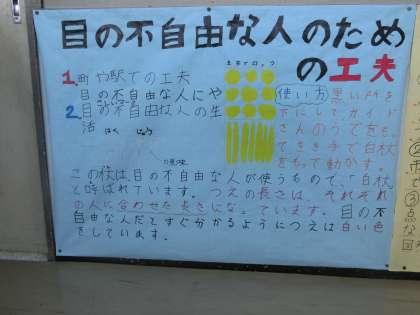 目の不自由な人のため
の工夫
1 町や駅での工夫
目の不自由な人にや
2 目の不自由な人の生
活 はくじょう
点字ブロック
使い方
下にして、ガイド
さんのうでをも
きき手で白杖
をもって動かす。
この杖は、目の不自由な人が使うもので、「白杖
と呼ばれています。つえの長さは、それぞれ
の人に合わせた長さになっています。目の不
自由な人だとすぐ分かるようにつえは白い色
をしています。
②
③
点